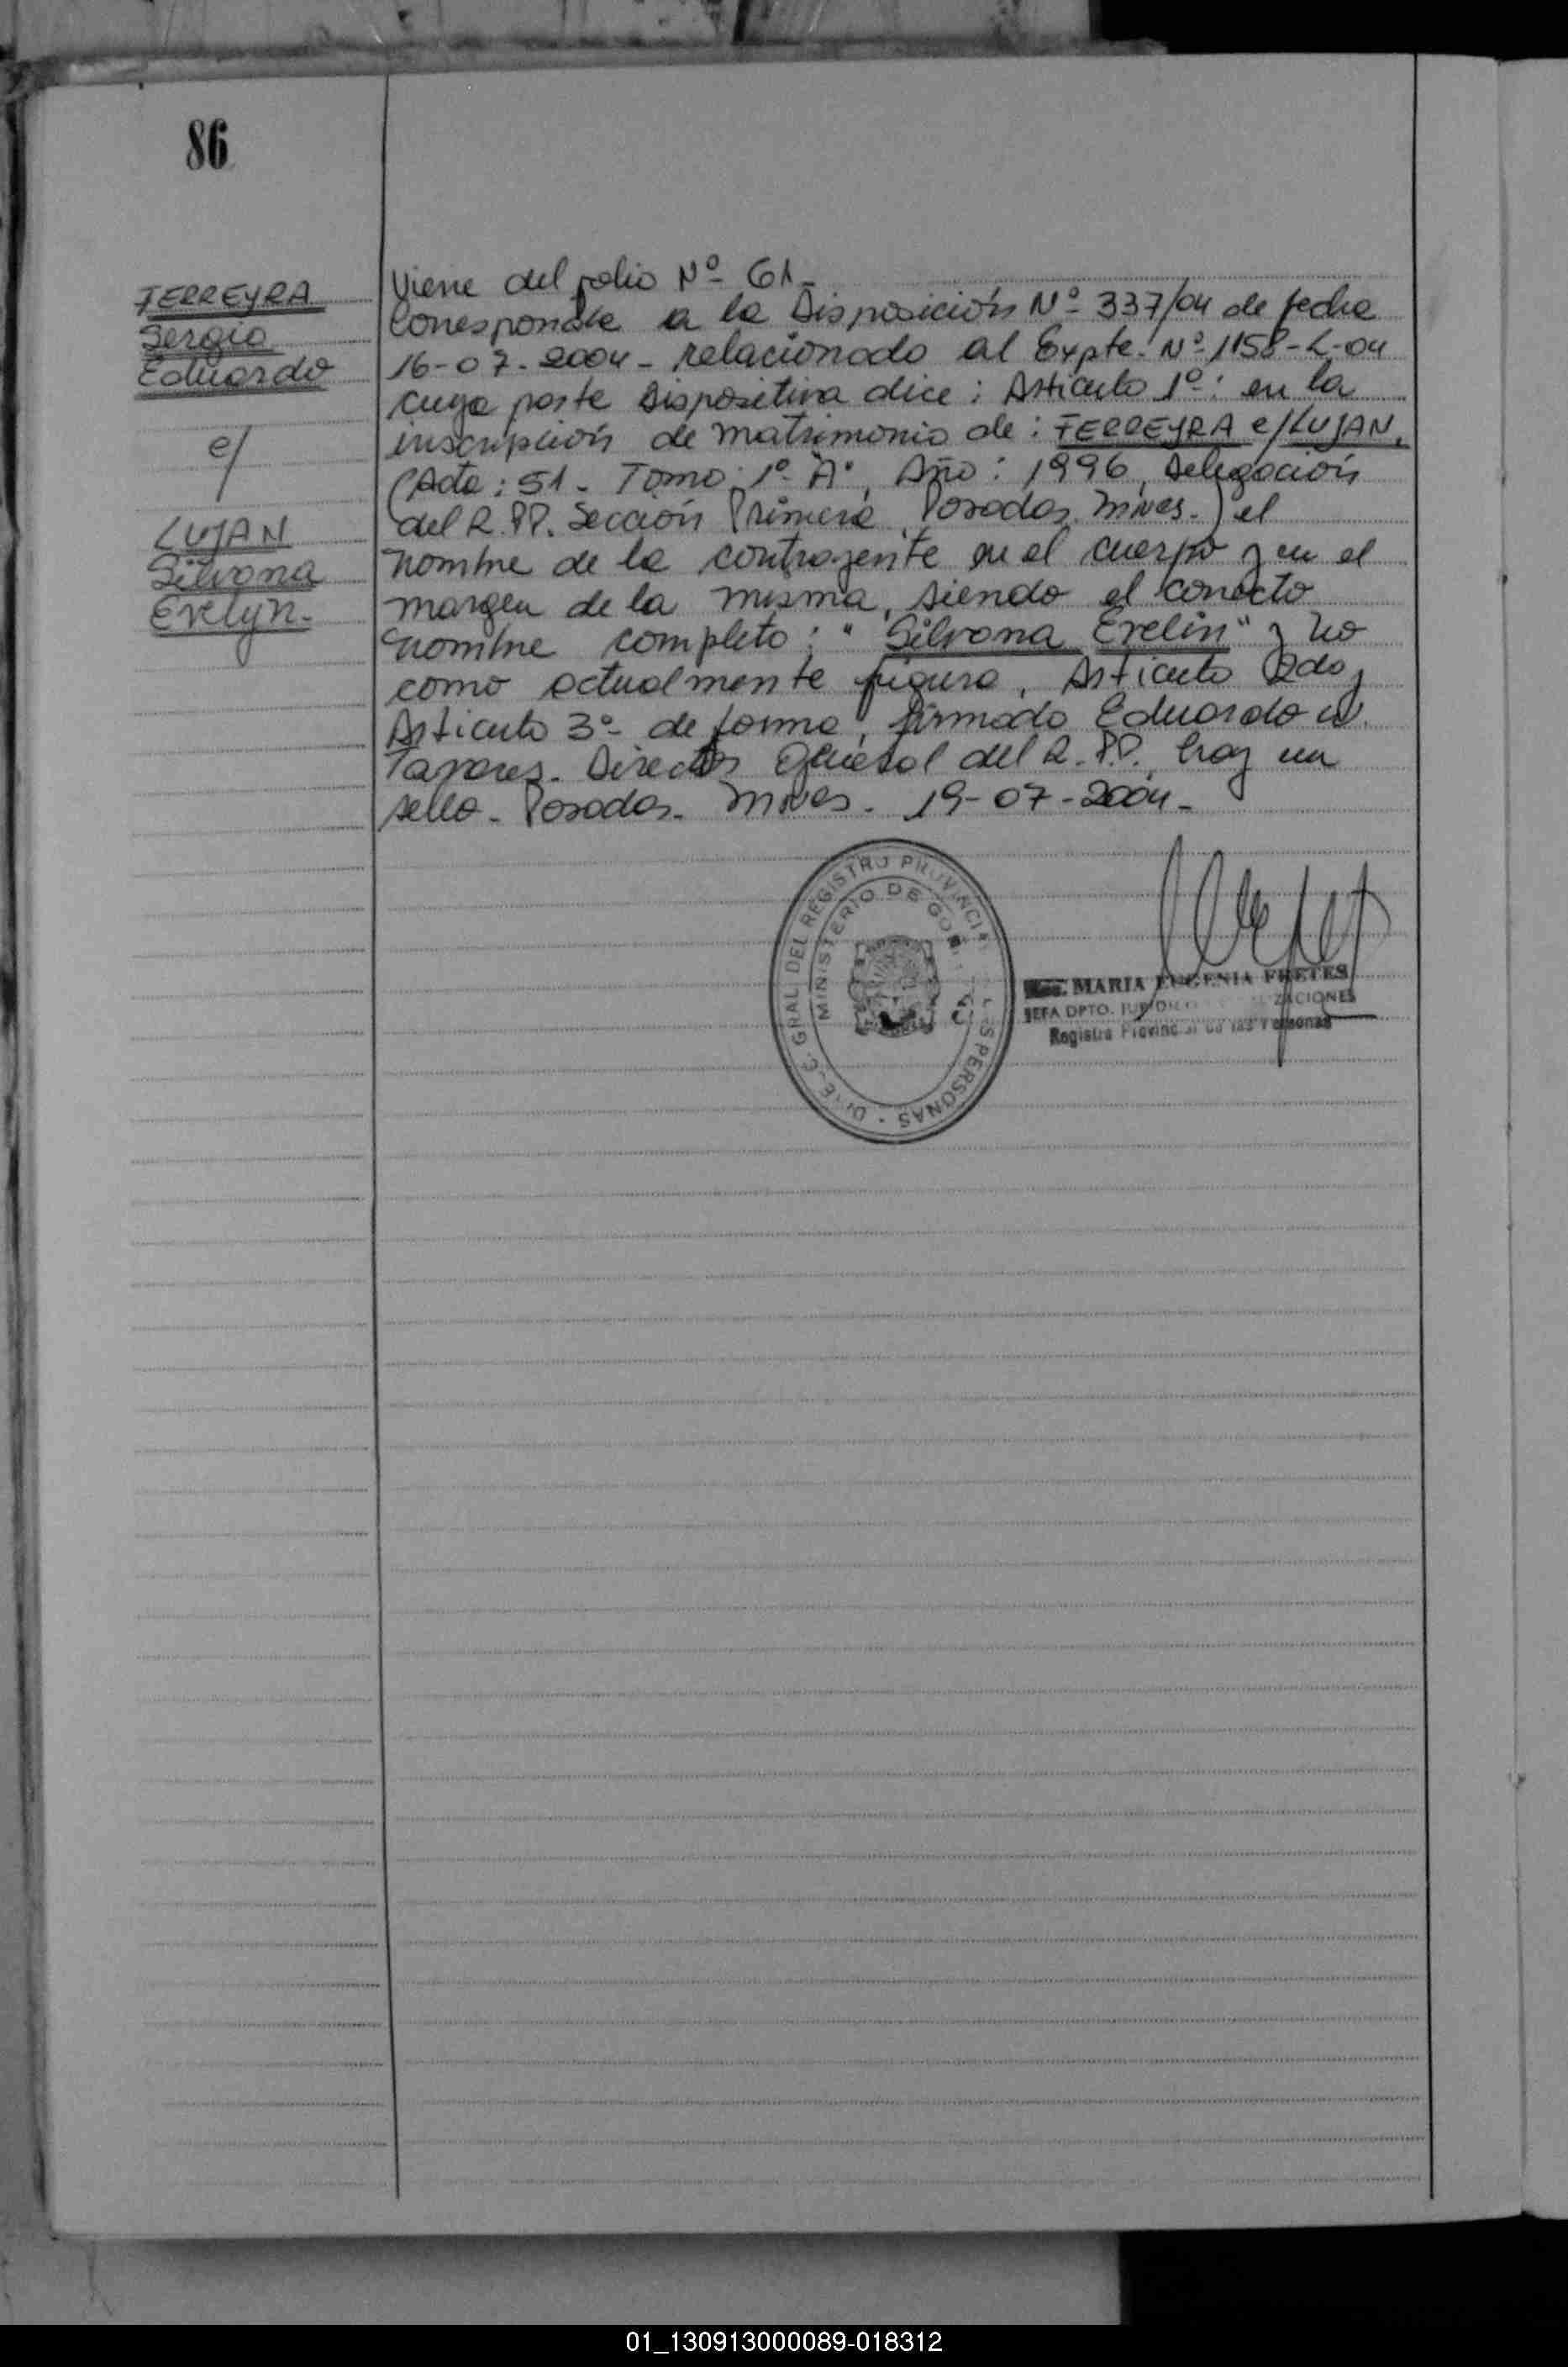 86
FERREYRA
Sergio
Eduardo
c/
LUJAN
Silvana
Evelyn.
Viene del folio Nº 61-
Corresponde a la Disposición Nº 337/04 de fecha
16-07-2004- relacionado al Expte. Nº 1158-L-04
cuya parte Dispositiva dice: Artículo 1º: en la
inscripción de matrimonio de: FERREYRA c/LUJAN,
(Acta: 51- Tomo: 1º "A", Año: 1996, Delegación
del R.PP. Sección Primera, Posadas, Mnes.) el
nombre de la contrayente en el cuerpo y en el
margen de la misma, siendo el correcto
nombre completo: "Silvana Evelin" y no
como actualmente figura, Artículo 2do y
Artículo 3º de forma, firmado Eduardo W.
Tavares. Director General del R.P.P. hay un
sello- Posadas- Mnes. 19-07-2004-
DIREC. GRAL. DEL REGISTRO PROVINCIAL PERSONAS
MINISTERIO DE
MARIA EUGENIA FRETES
JEFA DPTO.
Registro Provincial de las Personas
01_130913000089-018312